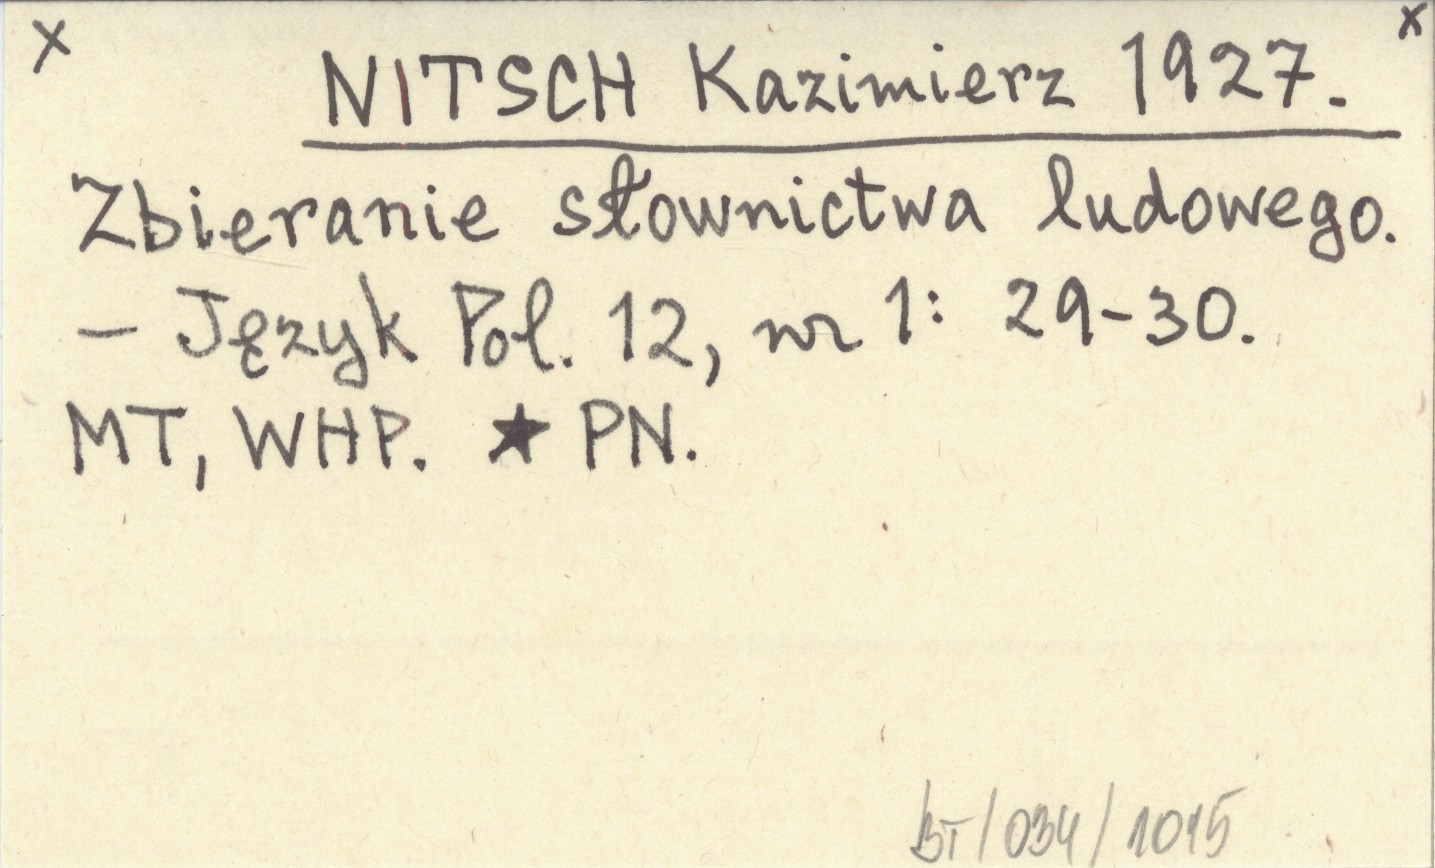 x x
NITSCH Kazimierz 1927.
Zbieranie słownictwa ludowego.
– Język Pol. 12, nr 1: 29-30.
MT, WHP. ★ PN.
BT/034/1015